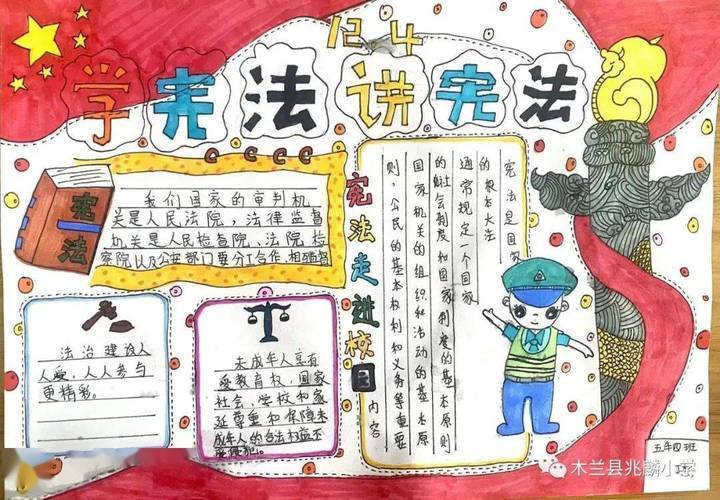 12.4
学宪法讲宪法
宪法
我们国家的审判机
关是人民法院，法律监督
机关是人民检查院、法院检
察院以及公安部门要分工合作，相
宪法走进校园
宪法是国家
的根本大法
通常规定一个国家
的社会制度和国家制度的基本原则
国家机关的组织和活动的基本原
则，公民的基本权利和义务等重要
内容
法治建设人
人爱，人人参与
更精彩。
未成年人享有
受教育权，国家
社会，学校和家
庭尊重和保障未
成年人的合法权益不
受侵犯。
五年四班
木兰县兆麟小学